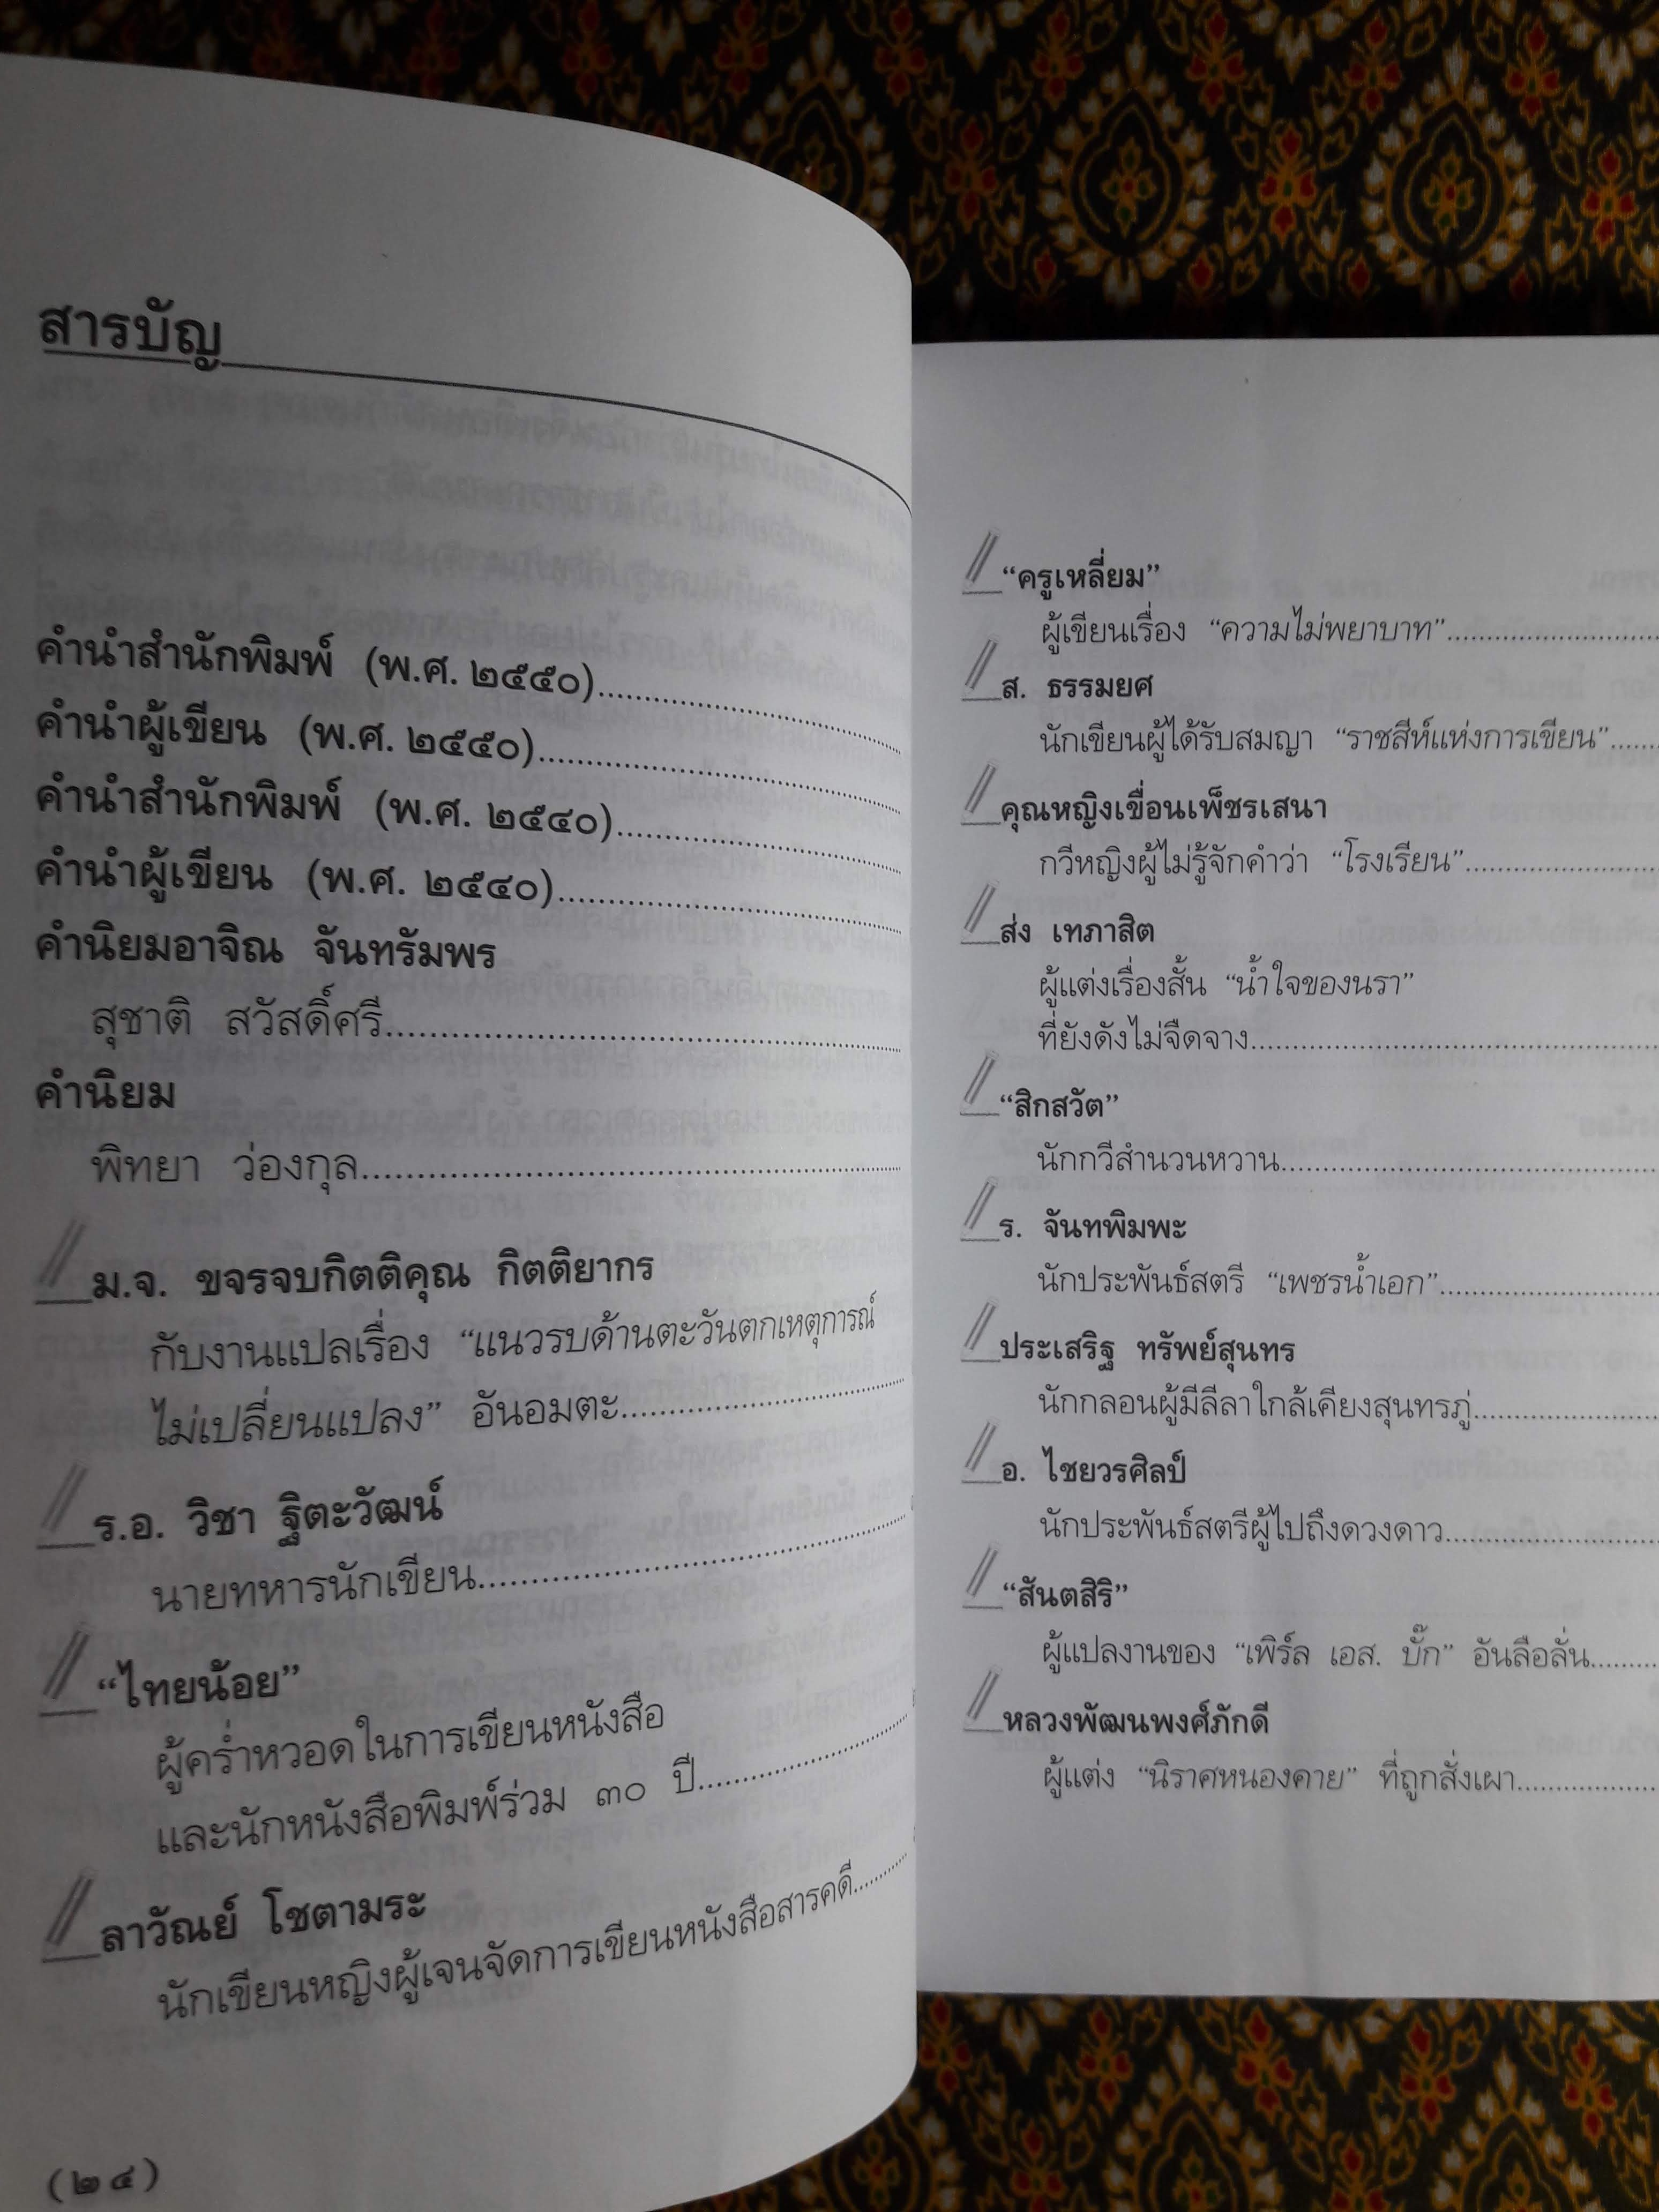 สารบัญ
คำนำสำนักพิมพ์ (พ.ศ. ๒๕๕๐)
คำนำผู้เขียน (พ.ศ. ๒๕๕๐)
คำนำสำนักพิมพ์ (พ.ศ. ๒๕๔๐)
คำนำผู้เขียน (พ.ศ. ๒๕๔๐)
คำนิยมอาจิณ จันทรัมพร
สุชาติ สวัสดิ์ศรี
คำนิยม
พิทยา ว่องกุล
ม.จ. ขจรจบกิตติคุณ กิตติยากร
กับงานแปลเรื่อง “แนวรบด้านตะวันตกเหตุการณ์
ไม่เปลี่ยนแปลง” อันอมตะ
ร.อ. วิชา ฐิตะวัฒน์
นายทหารนักเขียน
“ไทยน้อย”
ผู้คร่ำหวอดในการเขียนหนังสือ
และนักหนังสือพิมพ์ร่วม ๓๐ ปี
ลาวัณย์ โชตามระ
นักเขียนหญิงผู้เจนจัดการเขียนหนังสือสารคดี
(๒๔)
“ครูเหลี่ยม”
ผู้เขียนเรื่อง “ความไม่พยาบาท”
ส. ธรรมยศ
นักเขียนผู้ได้รับสมญา “ราชสีห์แห่งการเขียน”
คุณหญิงเขื่อนเพ็ชรเสนา
กวีหญิงผู้ไม่รู้จักคำว่า “โรงเรียน”
ส่ง เทภาสิต
ผู้แต่งเรื่องสั้น “น้ำใจของนรา”
ที่ยังดังไม่จืดจาง
“สิกสวัต”
นักกวีสำนวนหวาน
ร. จันทพิมพะ
นักประพันธ์สตรี “เพชรน้ำเอก”
ประเสริฐ ทรัพย์สุนทร
นักกลอนผู้มีลีลาใกล้เคียงสุนทรภู่
อ. ไชยวรศิลป์
นักประพันธ์สตรีผู้ไปถึงดวงดาว
“สันตสิริ”
ผู้แปลงานของ “เพิร์ล เอส. บั๊ก” อันลือลั่น
หลวงพัฒนพงศ์ภักดี
ผู้แต่ง “นิราศหนองคาย” ที่ถูกสั่งเผา